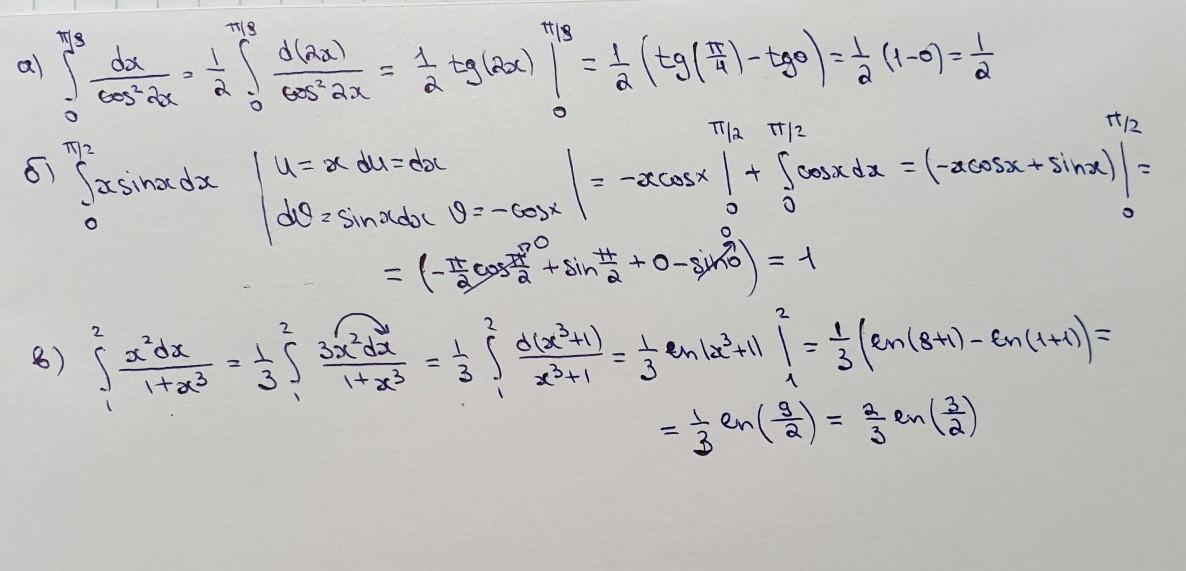 а) ∫₀^{π/8} dx/cos²2x = 1/2 ∫₀^{π/8} d(2x)/cos²2x = 1/2 tg(2x) |₀^{π/8} = 1/2 (tg(π/4) - tg0) = 1/2 (1-0) = 1/2
б) ∫₀^{π/2} x sinx dx | u = x du = dx dϑ = sinxdx ϑ = -cosx | = -xcosx |₀^{π/2} + ∫₀^{π/2} cosx dx = (-xcosx + sinx) |₀^{π/2} =
= (-π/2 cos π/2 →0 + sin π/2 + 0 - sin0 →0) = 1
в) ∫₁² x²dx/(1+x³) = 1/3 ∫₁² 3x²dx/(1+x³) = 1/3 ∫₁² d(x³+1)/(x³+1) = 1/3 ln|x³+1| |₁² = 1/3 (ln(8+1) - ln(1+1)) =
= 1/3 ln(9/2) = 2/3 ln(3/2)